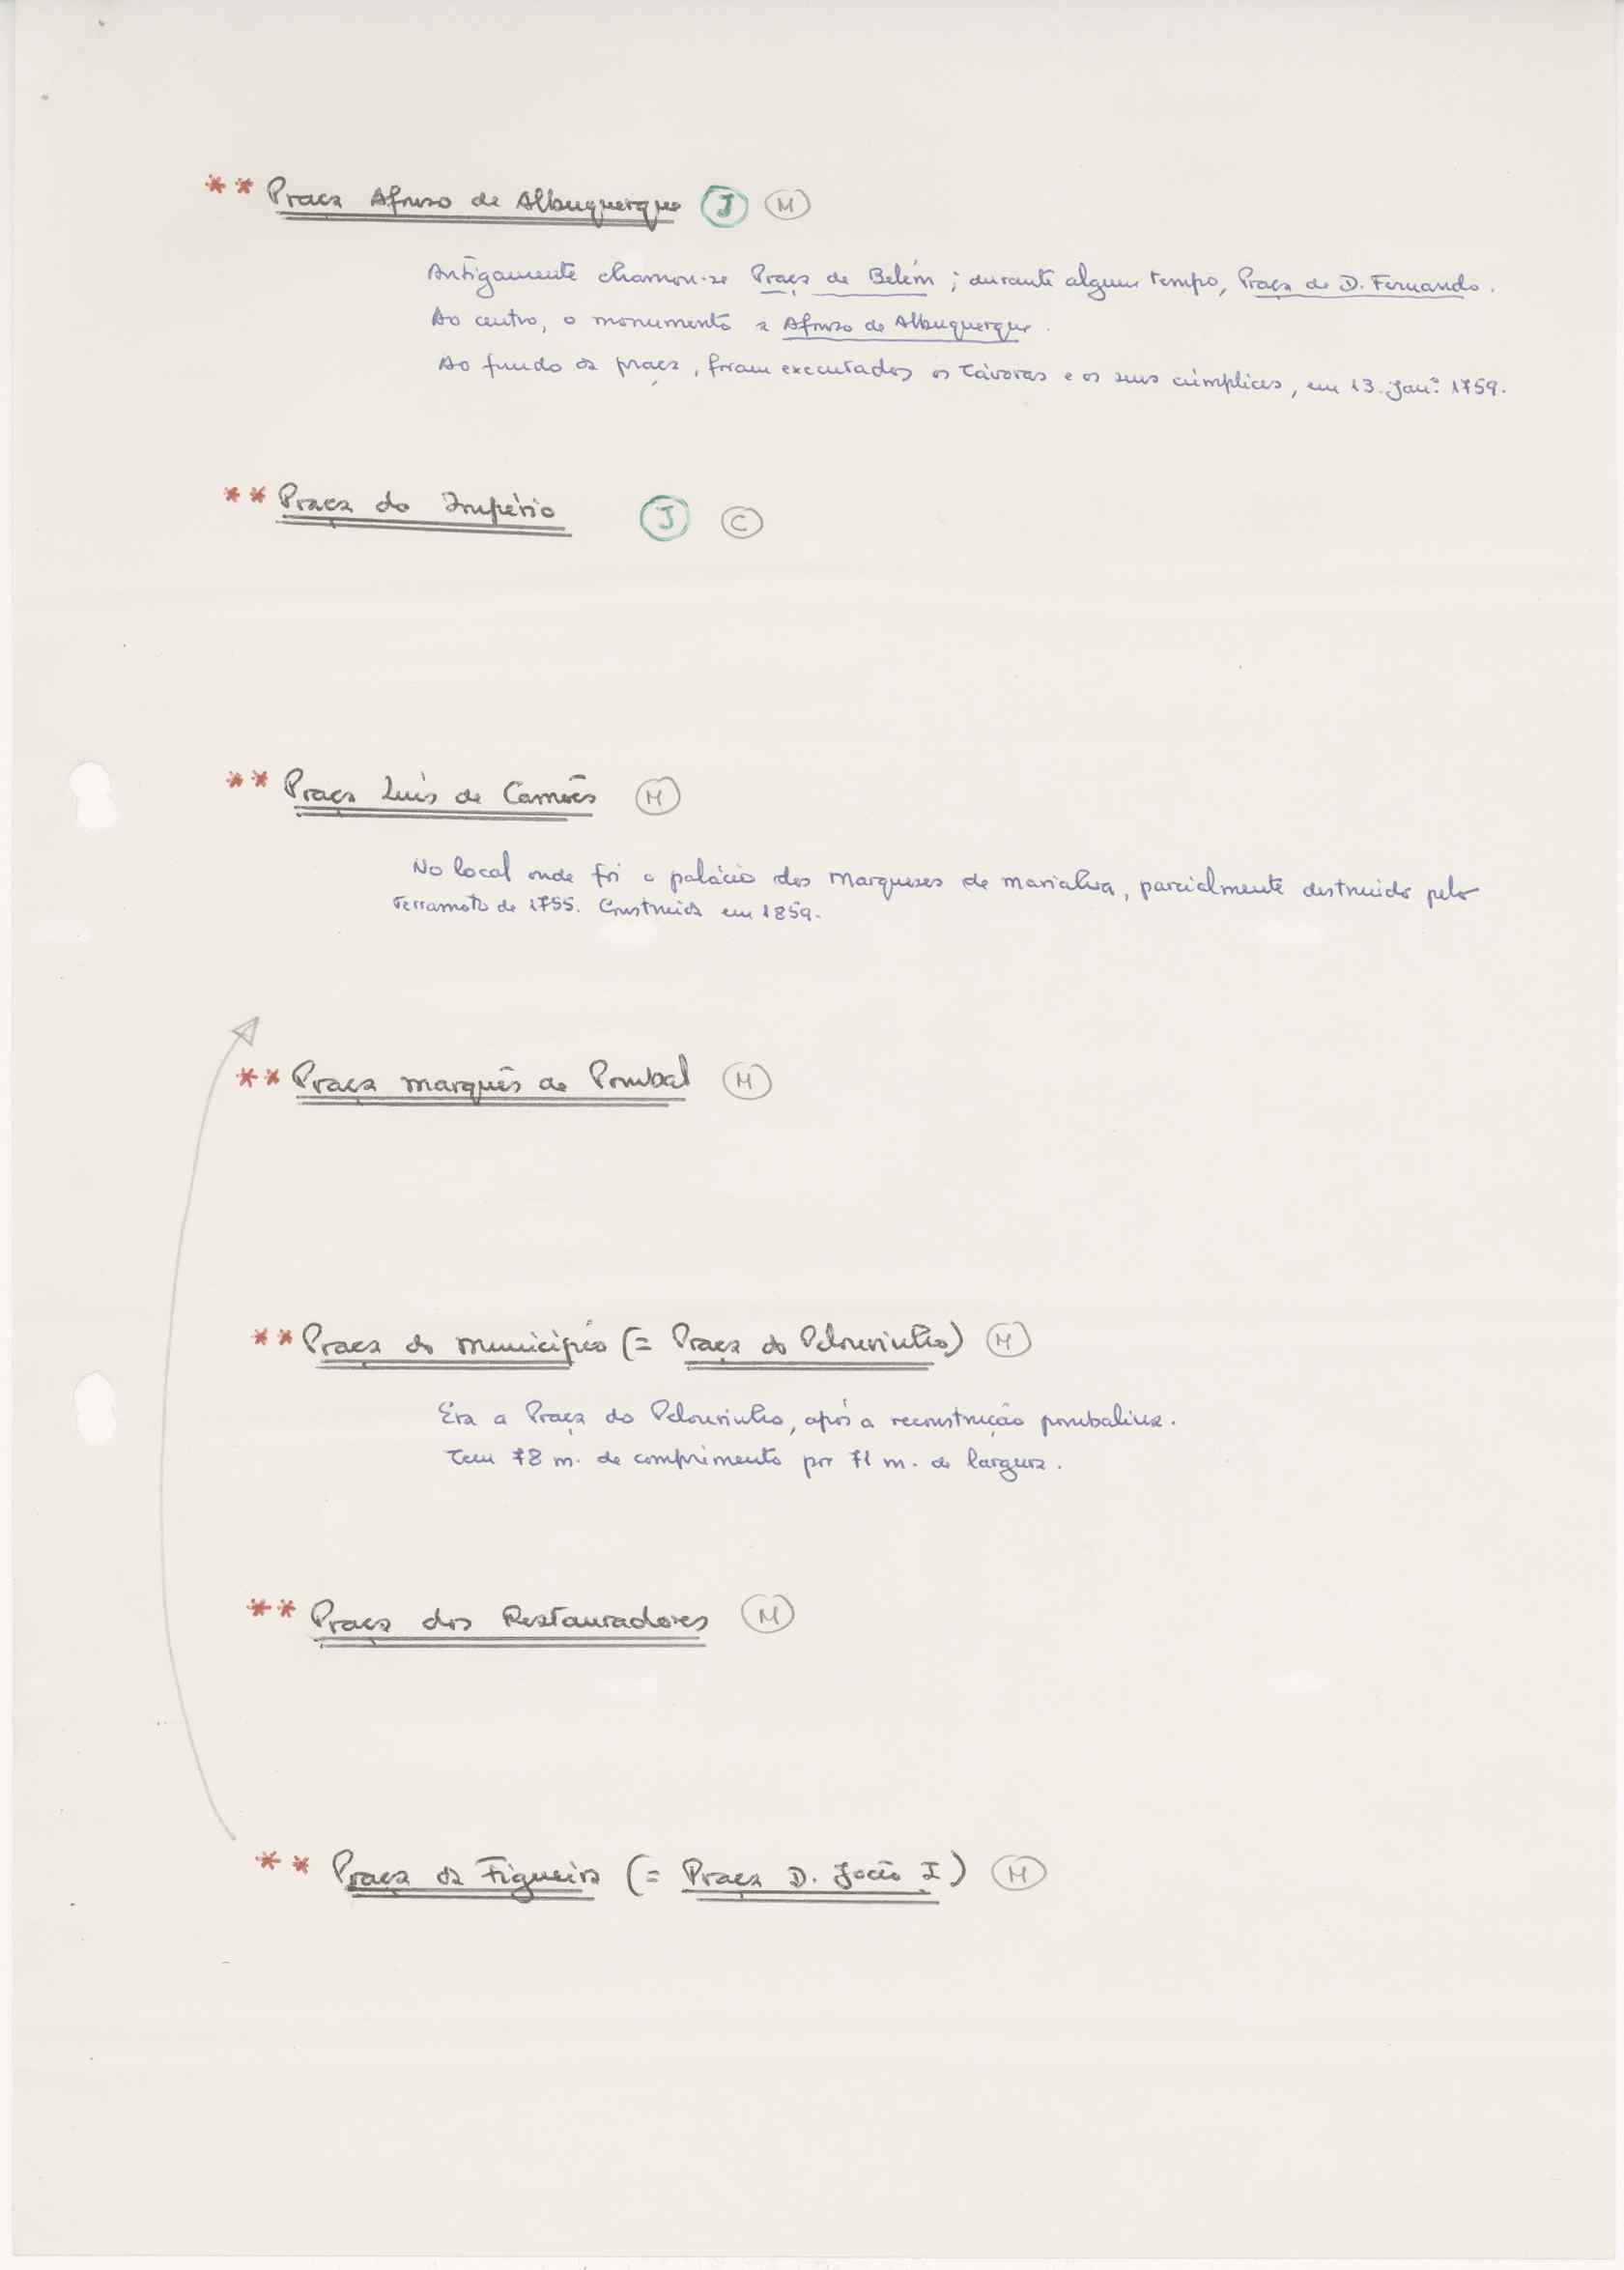 ** Praça Afonso de Albuquerque J M
Antigamente chamou-se Praça de Belém; durante algum tempo, Praça de D. Fernando.
Ao centro, o monumento a Afonso de Albuquerque.
Ao fundo da praça, foram executados os Távoras e os seus cúmplices, em 13. Janº. 1759.
** Praça do Império J C
** Praça Luís de Camões M
No local onde foi o palácio dos Marqueses de Marialva, parcialmente destruido pelo
Terramoto de 1755. Construida em 1859.
** Praça Marquês de Pombal M
** Praça do Município (= Praça do Pelourinho) M
Era a Praça do Pelourinho, após a reconstrução pombalina.
Tem 78 m. de comprimento por 71 m. de largura.
** Praça dos Restauradores M
** Praça da Figueira (= Praça D. João I) M